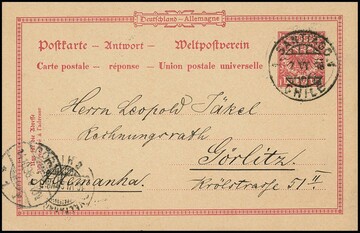 Deutschland - Allemagne
Postkarte - Antwort - Weltpostverein
Carte postale - réponse - Union postale universelle
CHILE
Herrn Leopold Jäkel
Rechnungsrath
Görlitz
Alemanha. Krölstrasse 51 II